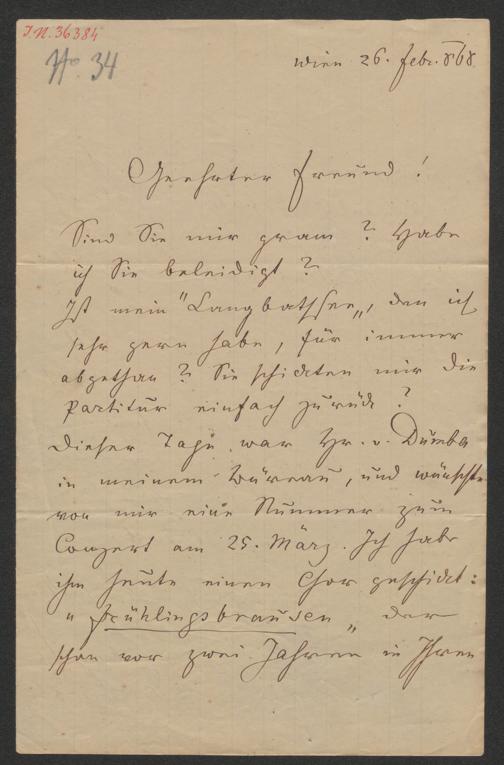 I.N. 36384
No. 34
Wien 26. Febr. 868
Geehrter Freund!
Sind Sie mir gram? Habe
ich Sie beleidigt?
Ist mein "Langbathsee", den ich
sehr gern habe, für immer
abgethan? Sie schickten mir die
Partitur einfach zurück?
Dieser Tage war Hr. v. Dumba
in meinem Büreau, und wünschte
von mir eine Nummer zum
Conzert am 25. März. Ich habe
ihm heute einen Chor geschickt:
"Frühlingsbrausen" der
schon vor zwei Jahren in Ihren